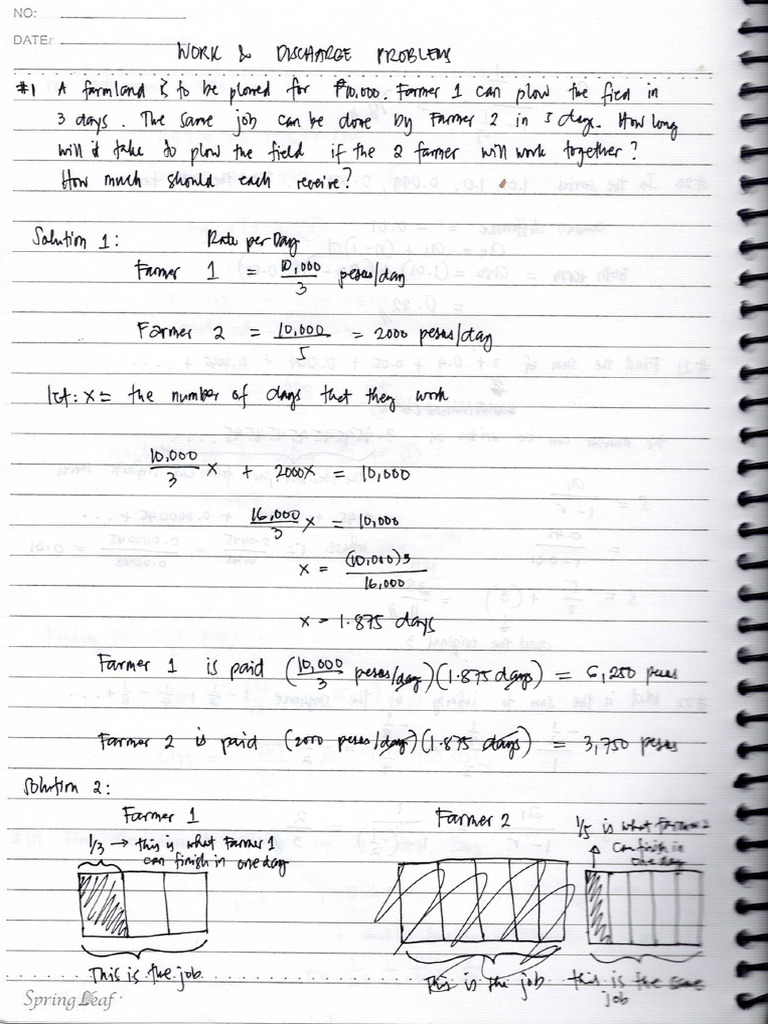 NO:
DATE:
WORK & DISCHARGE PROBLEMS
#1 A farmland is to be plowed for ₱10,000. Farmer 1 can plow the field in
3 days. The same job can be done by Farmer 2 in 5 days. How long
will it take to plow the field if the 2 farmer will work together?
How much should each receive?
Solution 1: Rate per Day
Farmer 1 = 10,000/3 pesos/day
Farmer 2 = 10,000/5 = 2000 pesos/day
let: x = the number of days that they work
10,000/3 x + 2000x = 10,000
16,000/3 x = 10,000
x = (10,000)3/16,000
x = 1.875 days
Farmer 1 is paid (10,000/3 pesos/day)(1.875 days) = 6,250 pesos
Farmer 2 is paid (2000 pesos/day)(1.875 days) = 3,750 pesos
Solution 2:
Farmer 1
1/3 → this is what Farmer 1
can finish in one day
This is the job
Farmer 2
This is the job
1/5 is what Farmer 2
can finish in
one day
this is the same
job
Spring Leaf